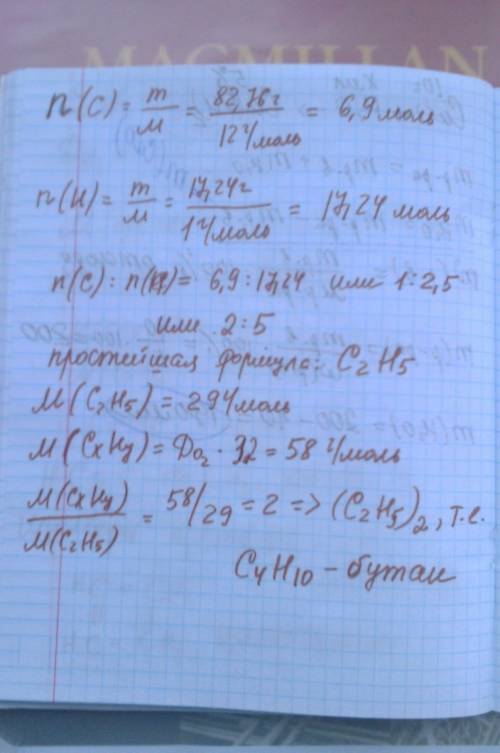 MACMILLAN
n(C) = m/M = 82,76г/12 г/моль = 6,9 моль
n(H) = m/M = 17,24г/1 г/моль = 17,24 моль
n(C) : n(H) = 6,9 : 17,24 или 1 : 2,5
или 2 : 5
простейшая формула: C₂H₅
M(C₂H₅) = 29 г/моль
M(CxHy) = Do₂ · 32 = 58 г/моль
M(CxHy)/M(C₂H₅) = 58/29 = 2 => (C₂H₅)₂, т.е.
C₄H₁₀ – бутан